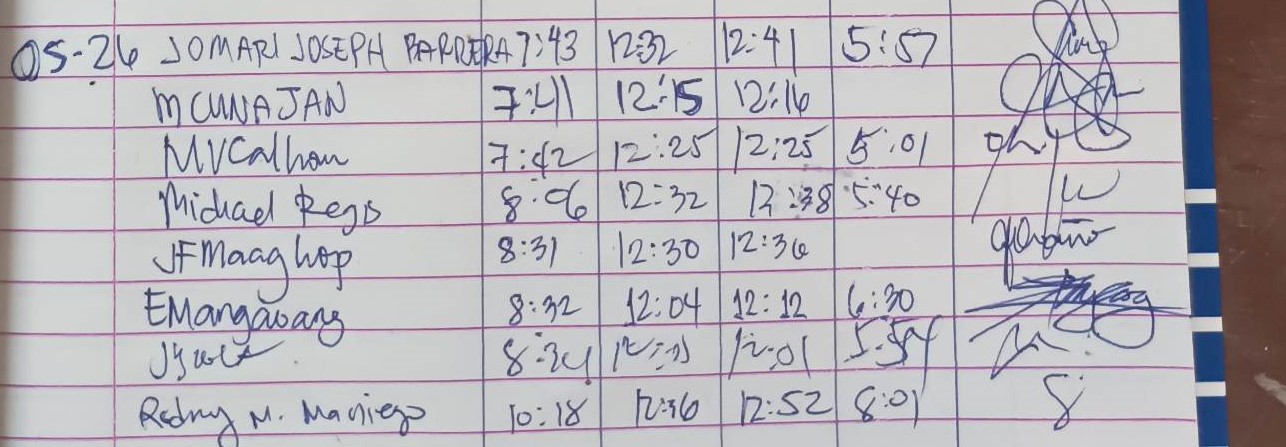 05-26 JOMARI JOSEPH BARRERA 7:43 12:32 12:41 5:57
MCUNAJAN 7:41 12:15 12:16
MVCalhou 7:42 12:25 12:25 5:01
Michael Regis 8:06 12:32 12:38 5:40
JFMaaghop 8:31 12:30 12:36
EMangaoang 8:32 12:04 12:12 6:30
12:01
Rodny M. Maniego 10:18 12:36 12:52 8:01